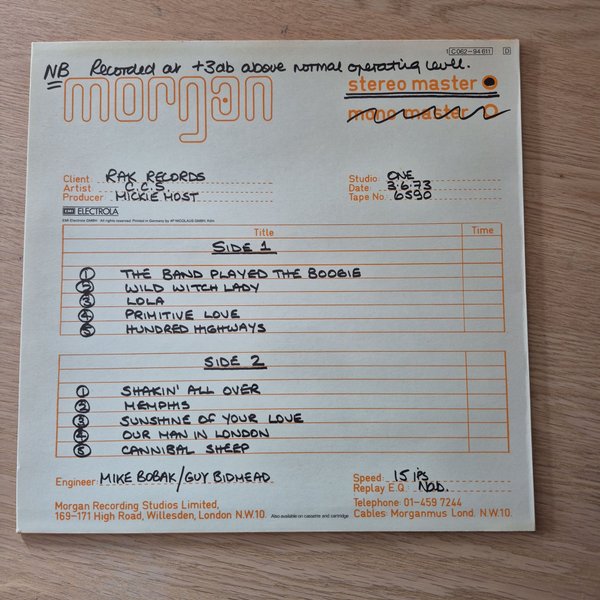 1C062-94 611 D
NB Recorded at +3db above normal operating level.
morgan
stereo master
mono master
Client: RAK RECORDS
Artist: C.C.S.
Producer: MICKIE MOST
Studio: ONE
Date: 3.6.73
Tape No. 6590
EMI ELECTROLA
EMI Electrola GMBH · All rights reserved. Printed in Germany by 4P NICOLAUS GMBH, Köln
Title Time
SIDE 1
1 THE BAND PLAYED THE BOOGIE
2 WILD WITCH LADY
3 LOLA
4 PRIMITIVE LOVE
5 HUNDRED HIGHWAYS
SIDE 2
1 SHAKIN' ALL OVER
2 MEMPHIS
3 SUNSHINE OF YOUR LOVE
4 OUR MAN IN LONDON
5 CANNIBAL SHEEP
Engineer: MIKE BOBAK/GUY BIDMEAD
Speed: 15 IPS
Replay E.Q. NAB.
Morgan Recording Studios Limited,
169-171 High Road, Willesden, London N.W.10.
Also available on cassette and cartridge
Telephone: 01-459 7244
Cables: Morganmus Lond. N.W.10.